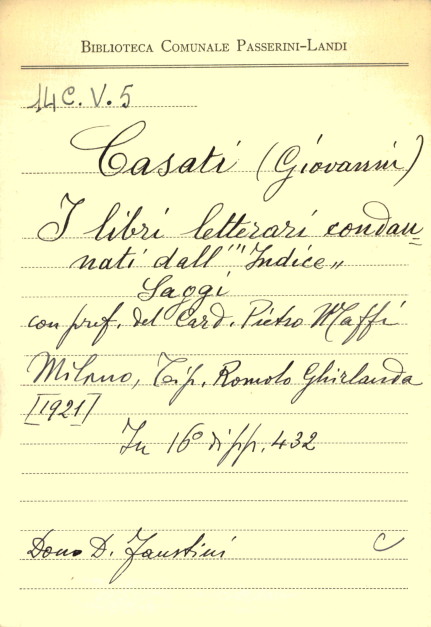 BIBLIOTECA COMUNALE PASSERINI-LANDI
14 C. V. 5
Casati (Giovanni)
I libri letterari condan=
nati dall'"Indice„
Saggi
con pref. del Card. Pietro Maffi
Milano, Tip. Romolo Ghirlanda
[1921]
In 16° di pp. 432
Dono D. Faustini C